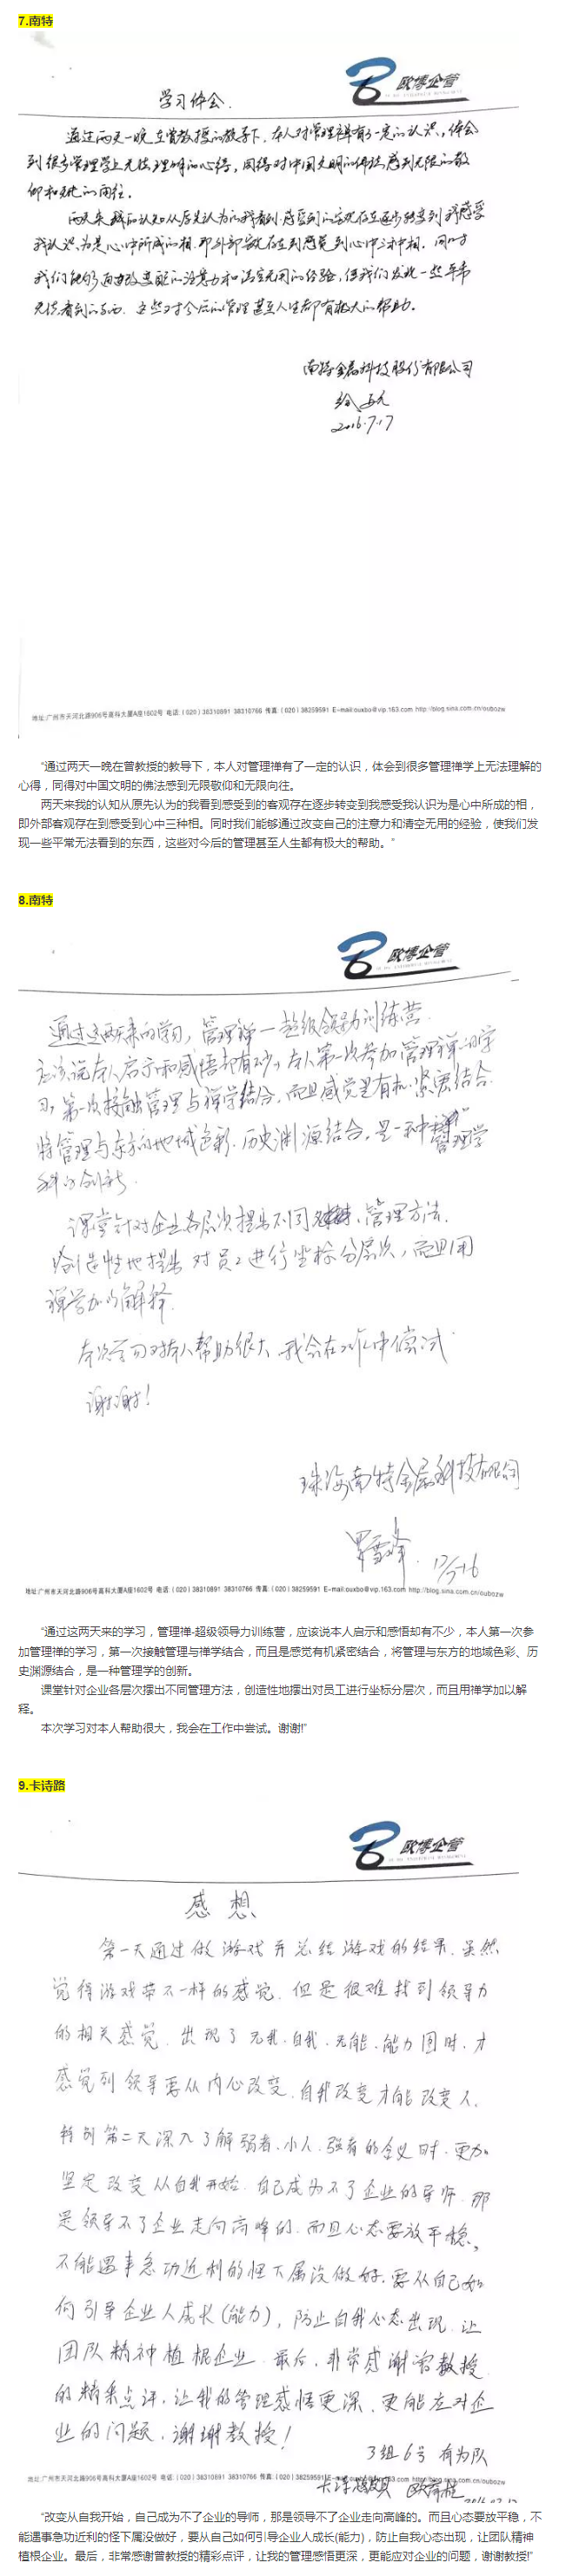 7.南特
欧博企管
学习体会.
通过两天一晚在曾教授的教导下,本人对管理禅有了一定的认识,体会
到很多管理学上无法理解的心得,同得对中国文明的佛法感到无限的敬
仰和无比的向往。
两天来我的认知从原先认为的我看到感受到的客观存在逐步转变到我感受
我认识为是心中所成的相,即外部客观存在到感觉到心中三种相。同时
我们能够通过改变自己的注意力和清空无用的经验,使我们发现一些平常
无法看到的东西,这些对今后的管理甚至人生都有极大的帮助。
南特金属科技股份有限公司
2016.7.17
地址:广州市天河北路906号高科大厦A座1602号 电话:(020)38310891 38310766 传真:(020)38259591 E-mail:ouxbo@vip.163.com http://blog.sina.com.cn/oubozw
“通过两天一晚在曾教授的教导下，本人对管理禅有了一定的认识，体会到很多管理禅学上无法理解的
心得，同得对中国文明的佛法感到无限敬仰和无限向往。
两天来我的认知从原先认为的我看到感受到的客观存在逐步转变到我感受我认识为是心中所成的相，
即外部客观存在到感受到心中三种相。同时我们能够通过改变自己的注意力和清空无用的经验，使我们发
现一些平常无法看到的东西，这些对今后的管理甚至人生都有极大的帮助。”
8.南特
欧博企管
通过这两天来的学习,管理禅一超级领导力训练营.
应该说本人启示和感悟却有不少,本人第一次参加管理禅的学
习,第一次接触管理与禅学结合,而且感觉是有机.紧密结合.
将管理与东方的地域色彩.历史渊源结合,是一种管理学
科的创新.
课堂针对企业各层次摆出不同管理方法,
创造性地摆出对员工进行坐标分层次,而且用
禅学加以解释.
本次学习对本人帮助很大,我会在工作中尝试.
谢谢!
珠海南特金属科技有限公司
地址:广州市天河北路906号高科大厦A座1602号 电话:(020)38310891 38310766 传真:(020)38259591 E-mail:ouxbo@vip.163.com http://blog.sina.com.cn/oubozw
“通过这两天来的学习，管理禅-超级领导力训练营，应该说本人启示和感悟却有不少，本人第一次参
加管理禅的学习，第一次接触管理与禅学结合，而且是感觉有机紧密结合，将管理与东方的地域色彩、历
史渊源结合，是一种管理学的创新。
课堂针对企业各层次摆出不同管理方法，创造性地摆出对员工进行坐标分层次，而且用禅学加以解
释。
本次学习对本人帮助很大，我会在工作中尝试。谢谢!”
9.卡诗路
欧博企管
感 想
第一天通过做游戏并总结游戏的结果.虽然
觉得游戏带不一样的感觉.但是很难找到领导力
的相关感觉.出现了无我.自我.无能.能力图时,才
感觉到领导要从内心改变.自我改变才能改变人.
特别第二天深入了解弱者.小人.强者的含义时.更加
坚定改变从自我开始.自己成为不了企业的导师.那
是领导不了企业走向高峰的.而且心态要放平稳,
不能遇事急功近利的怪下属没做好.要从自己如
何引导企业人成长(能力),防止自我心态出现.让
团队精神植根企业.最后,非常感谢曾教授
的精采点评,让我的管理感悟更深,更能应对企
业的问题,谢谢教授!
3组6号 有为队
地址:广州市天河北路906号高科大厦A座1602号 电话:(020)38310891 38310766 传真:(020)38259591
“改变从自我开始，自己成为不了企业的导师，那是领导不了企业走向高峰的。而且心态要放平稳，不
能遇事急功近利的怪下属没做好，要从自己如何引导企业人成长(能力)，防止自我心态出现，让团队精神
植根企业。最后，非常感谢曾教授的精彩点评，让我的管理感悟更深，更能应对企业的问题，谢谢教授!”